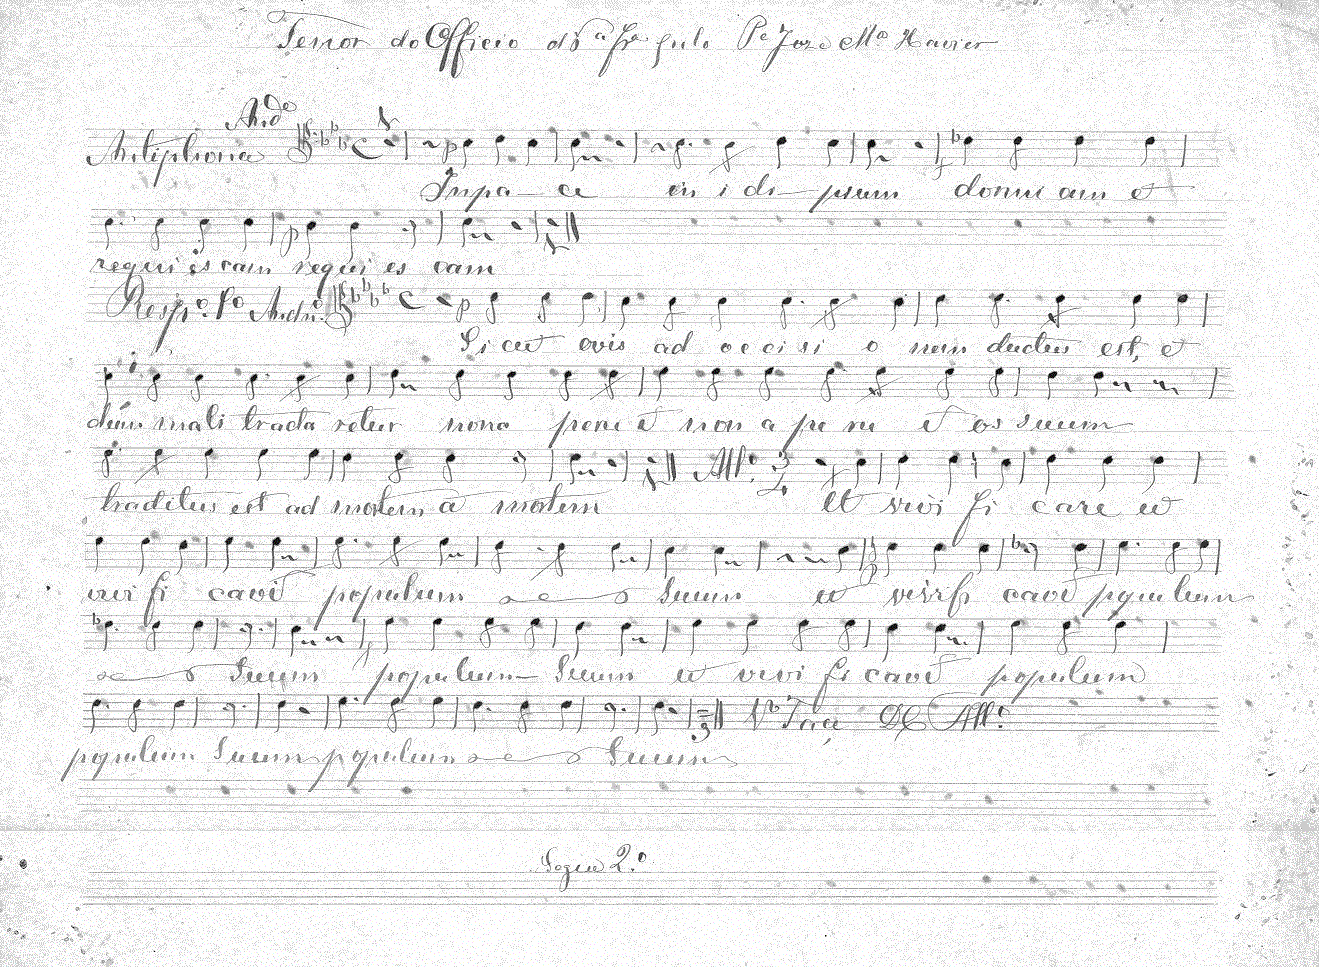 Tenor do Officio da 6ª frª pelo Pe Joze Mª Xavier
Andº
Antiphona
Inpa ce in i di psum dormi am et
requi es cam requi es cam
Respº 1º Andnº
Sicut ovis ad occisi o nem ductus est, et
dum mali tracta retur non a peru it non a pe ru it os suum
traditus est ad mortem a mortem Allº Et vivi fi care et
vivi fi caret populum suum et vivifi caret populum
suum populum suum et vivi fi caret populum
populum suum populum suum Vº Tace DC Allº
Segue 2.º